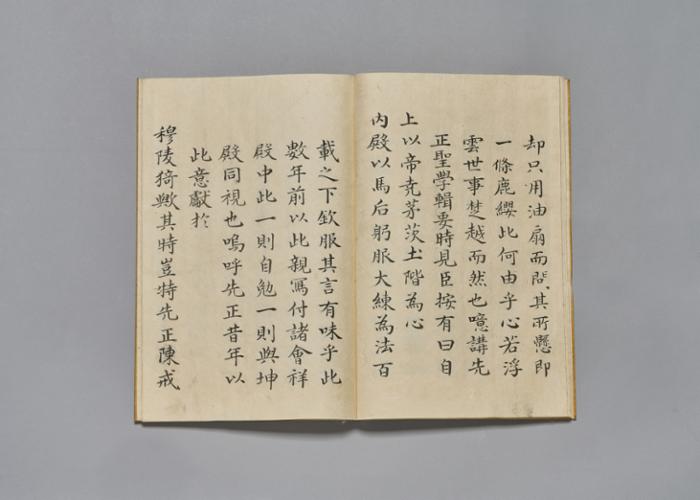 却只用油扇而問其所懸即
一條鹿纓此何由乎心若浮
雲世事楚越而然也噫講先
正聖學輯要時見臣按有曰自
上以帝堯茅茨土階為心
內殿以馬后躬服大練為法百
載之下欽服其言有味乎此
數年前以此親寫付諸會祥
殿中此一則自勉一則與坤
殿同視也嗚呼先正昔年以
此意獻於
穆陵猗歟其時豈特先正陳戒